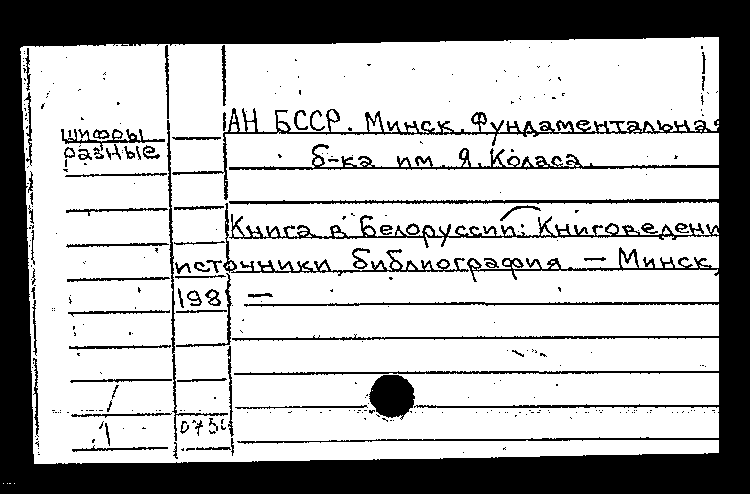 АН БССР. Минск. Фундаментальная
шифры
разные
б-ка им. Я. Коласа.
Книга в Белоруссии: Книговедени
источники, библиография. — Минск,
198 —
1